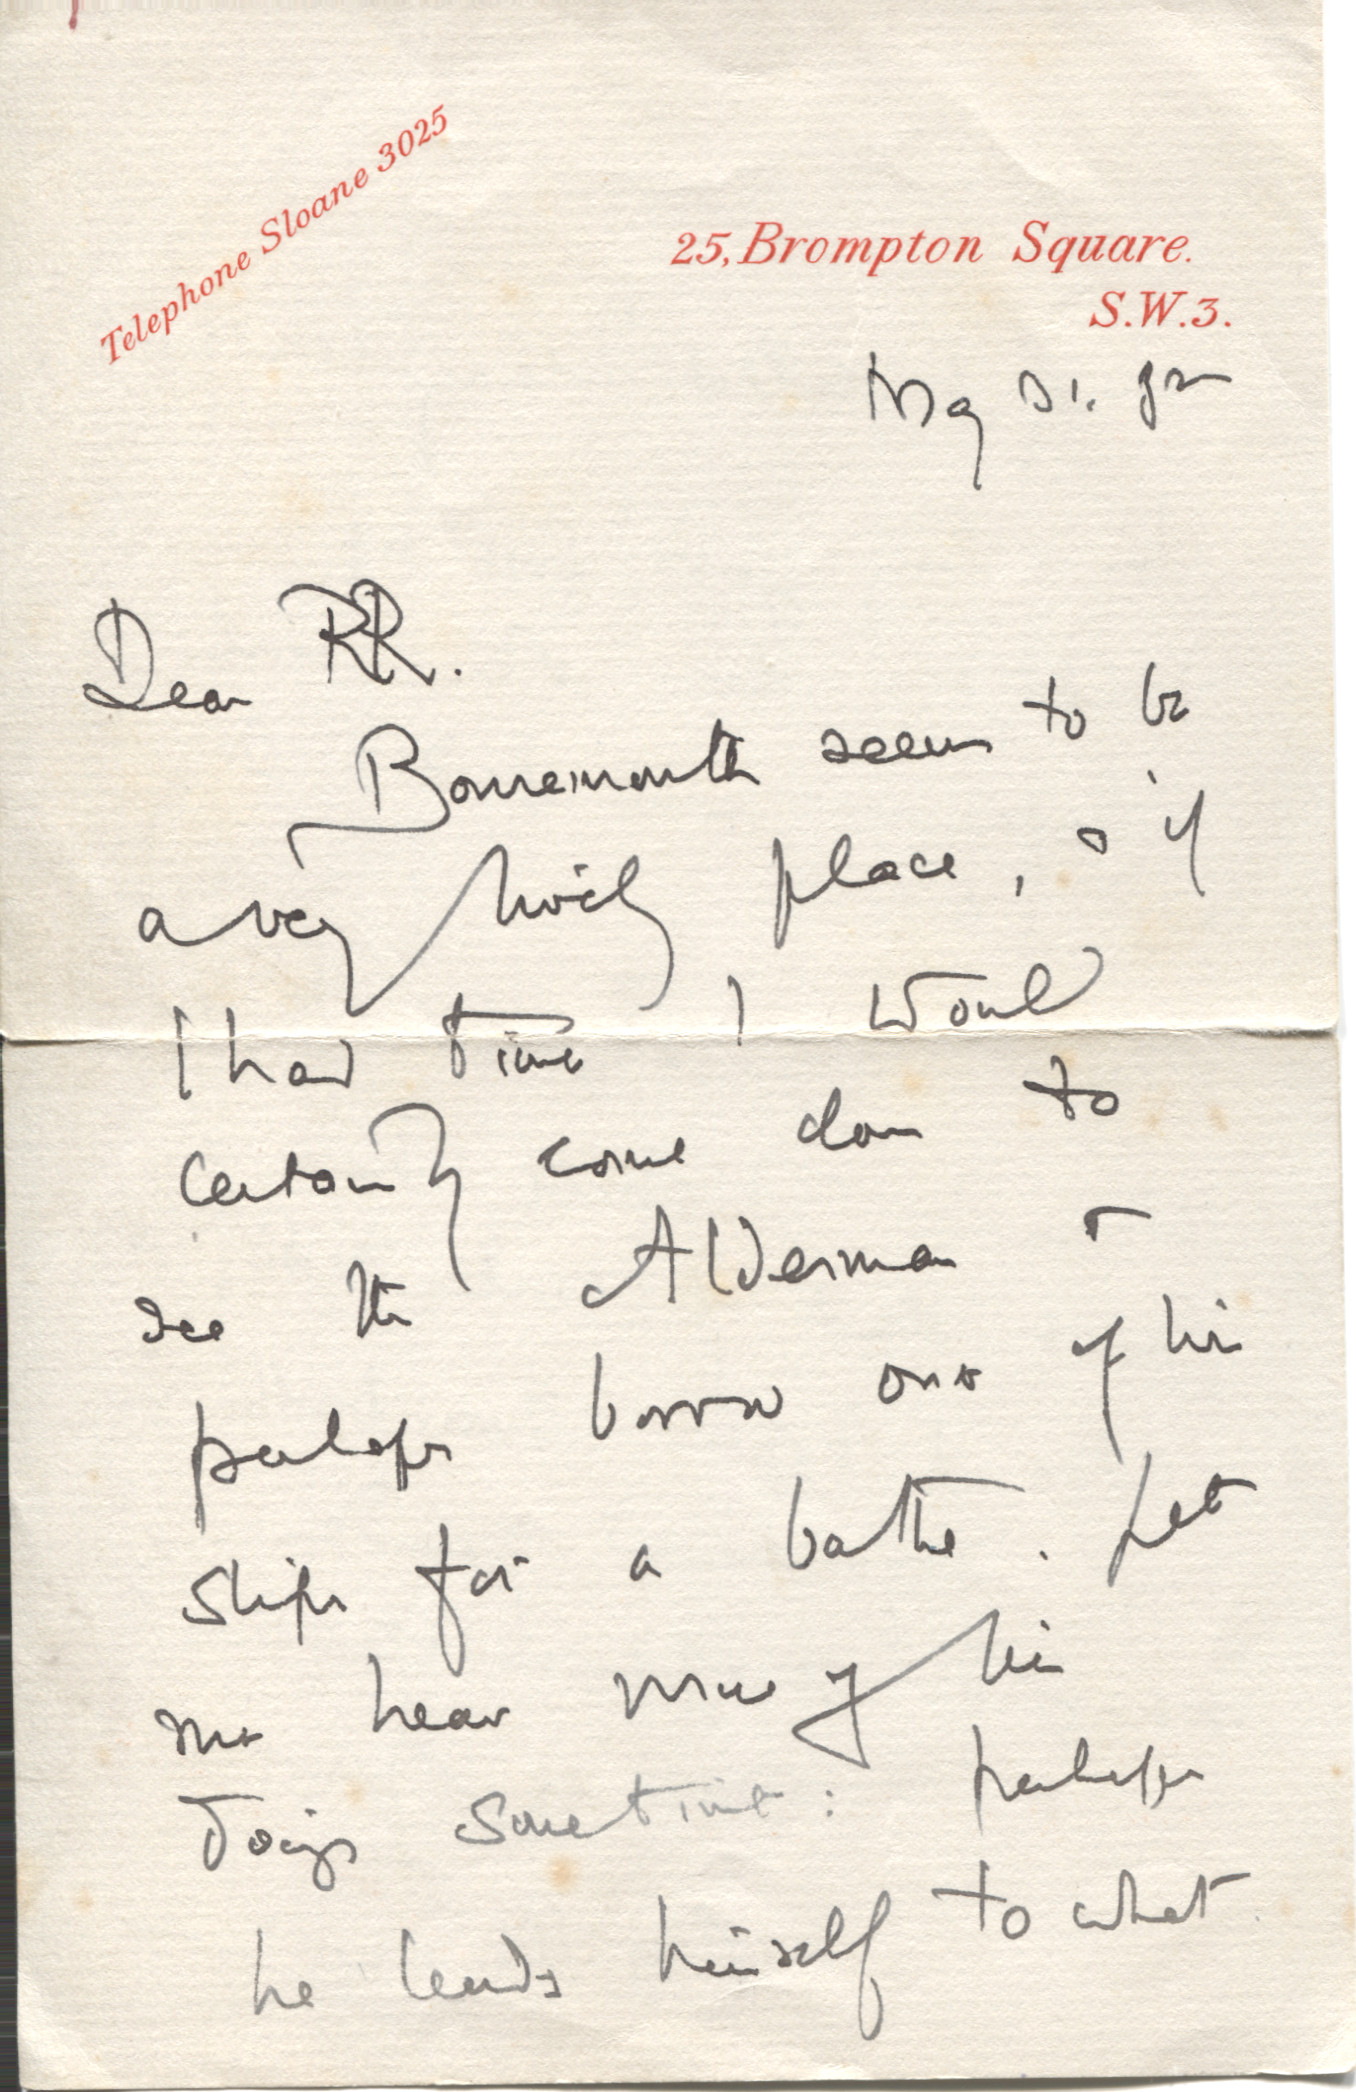 Telephone Sloane 3025
25, Brompton Square.
S.W.3.
Dear RR.
Bournemouth seems to be
a very lively place, & if
I had time I would
certainly come down to
see the Alderman &
perhaps borrow one of his
slips for a bathe. Let
me hear more of his
doings sometime: perhaps
he lends himself to what